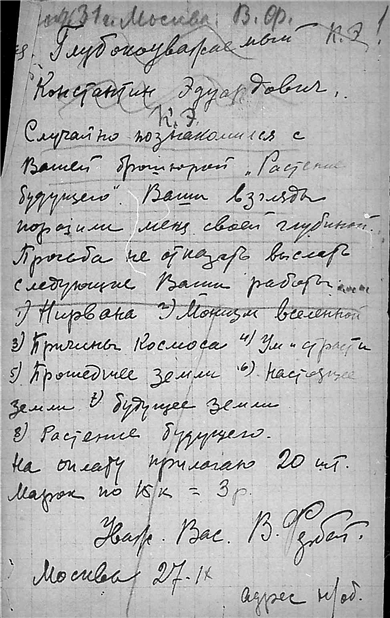 31 г. Москва В. Ф.
Глубокоуважаемый К.Э!
Константин Эдуардович,
К.Э.
Случайно познакомился с
Вашей брошюрой "Растение
будущего". Ваши взгляды
поразили меня своей глубиной.
Просьба не отказать выслать
следующие Ваши работы
1) Нирвана 2) Монизм вселенной
3) Причина Космоса 4) Ум и страсти
5) Прошедшее земли 6) Настоящее
земли 7) будущее земли
8) Растение будущего.
На оплату прилагаю 20 шт.
марок по 15 к = 3 р.
Уваж. Вас. В.
Москва 27-IX
адрес н/об.